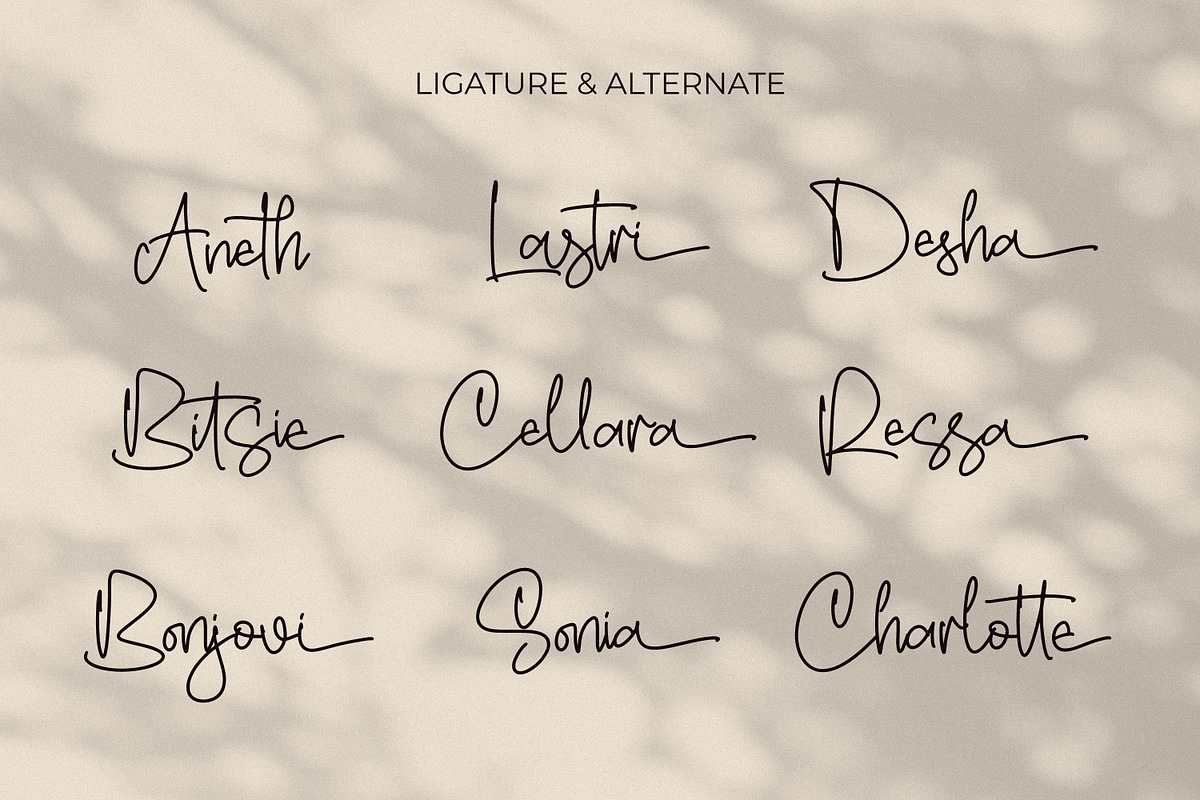 LIGATURE & ALTERNATE
Aneth Lastri Desha
Bitsie Cellara Ressa
Bonjovi Sonia Charlotte